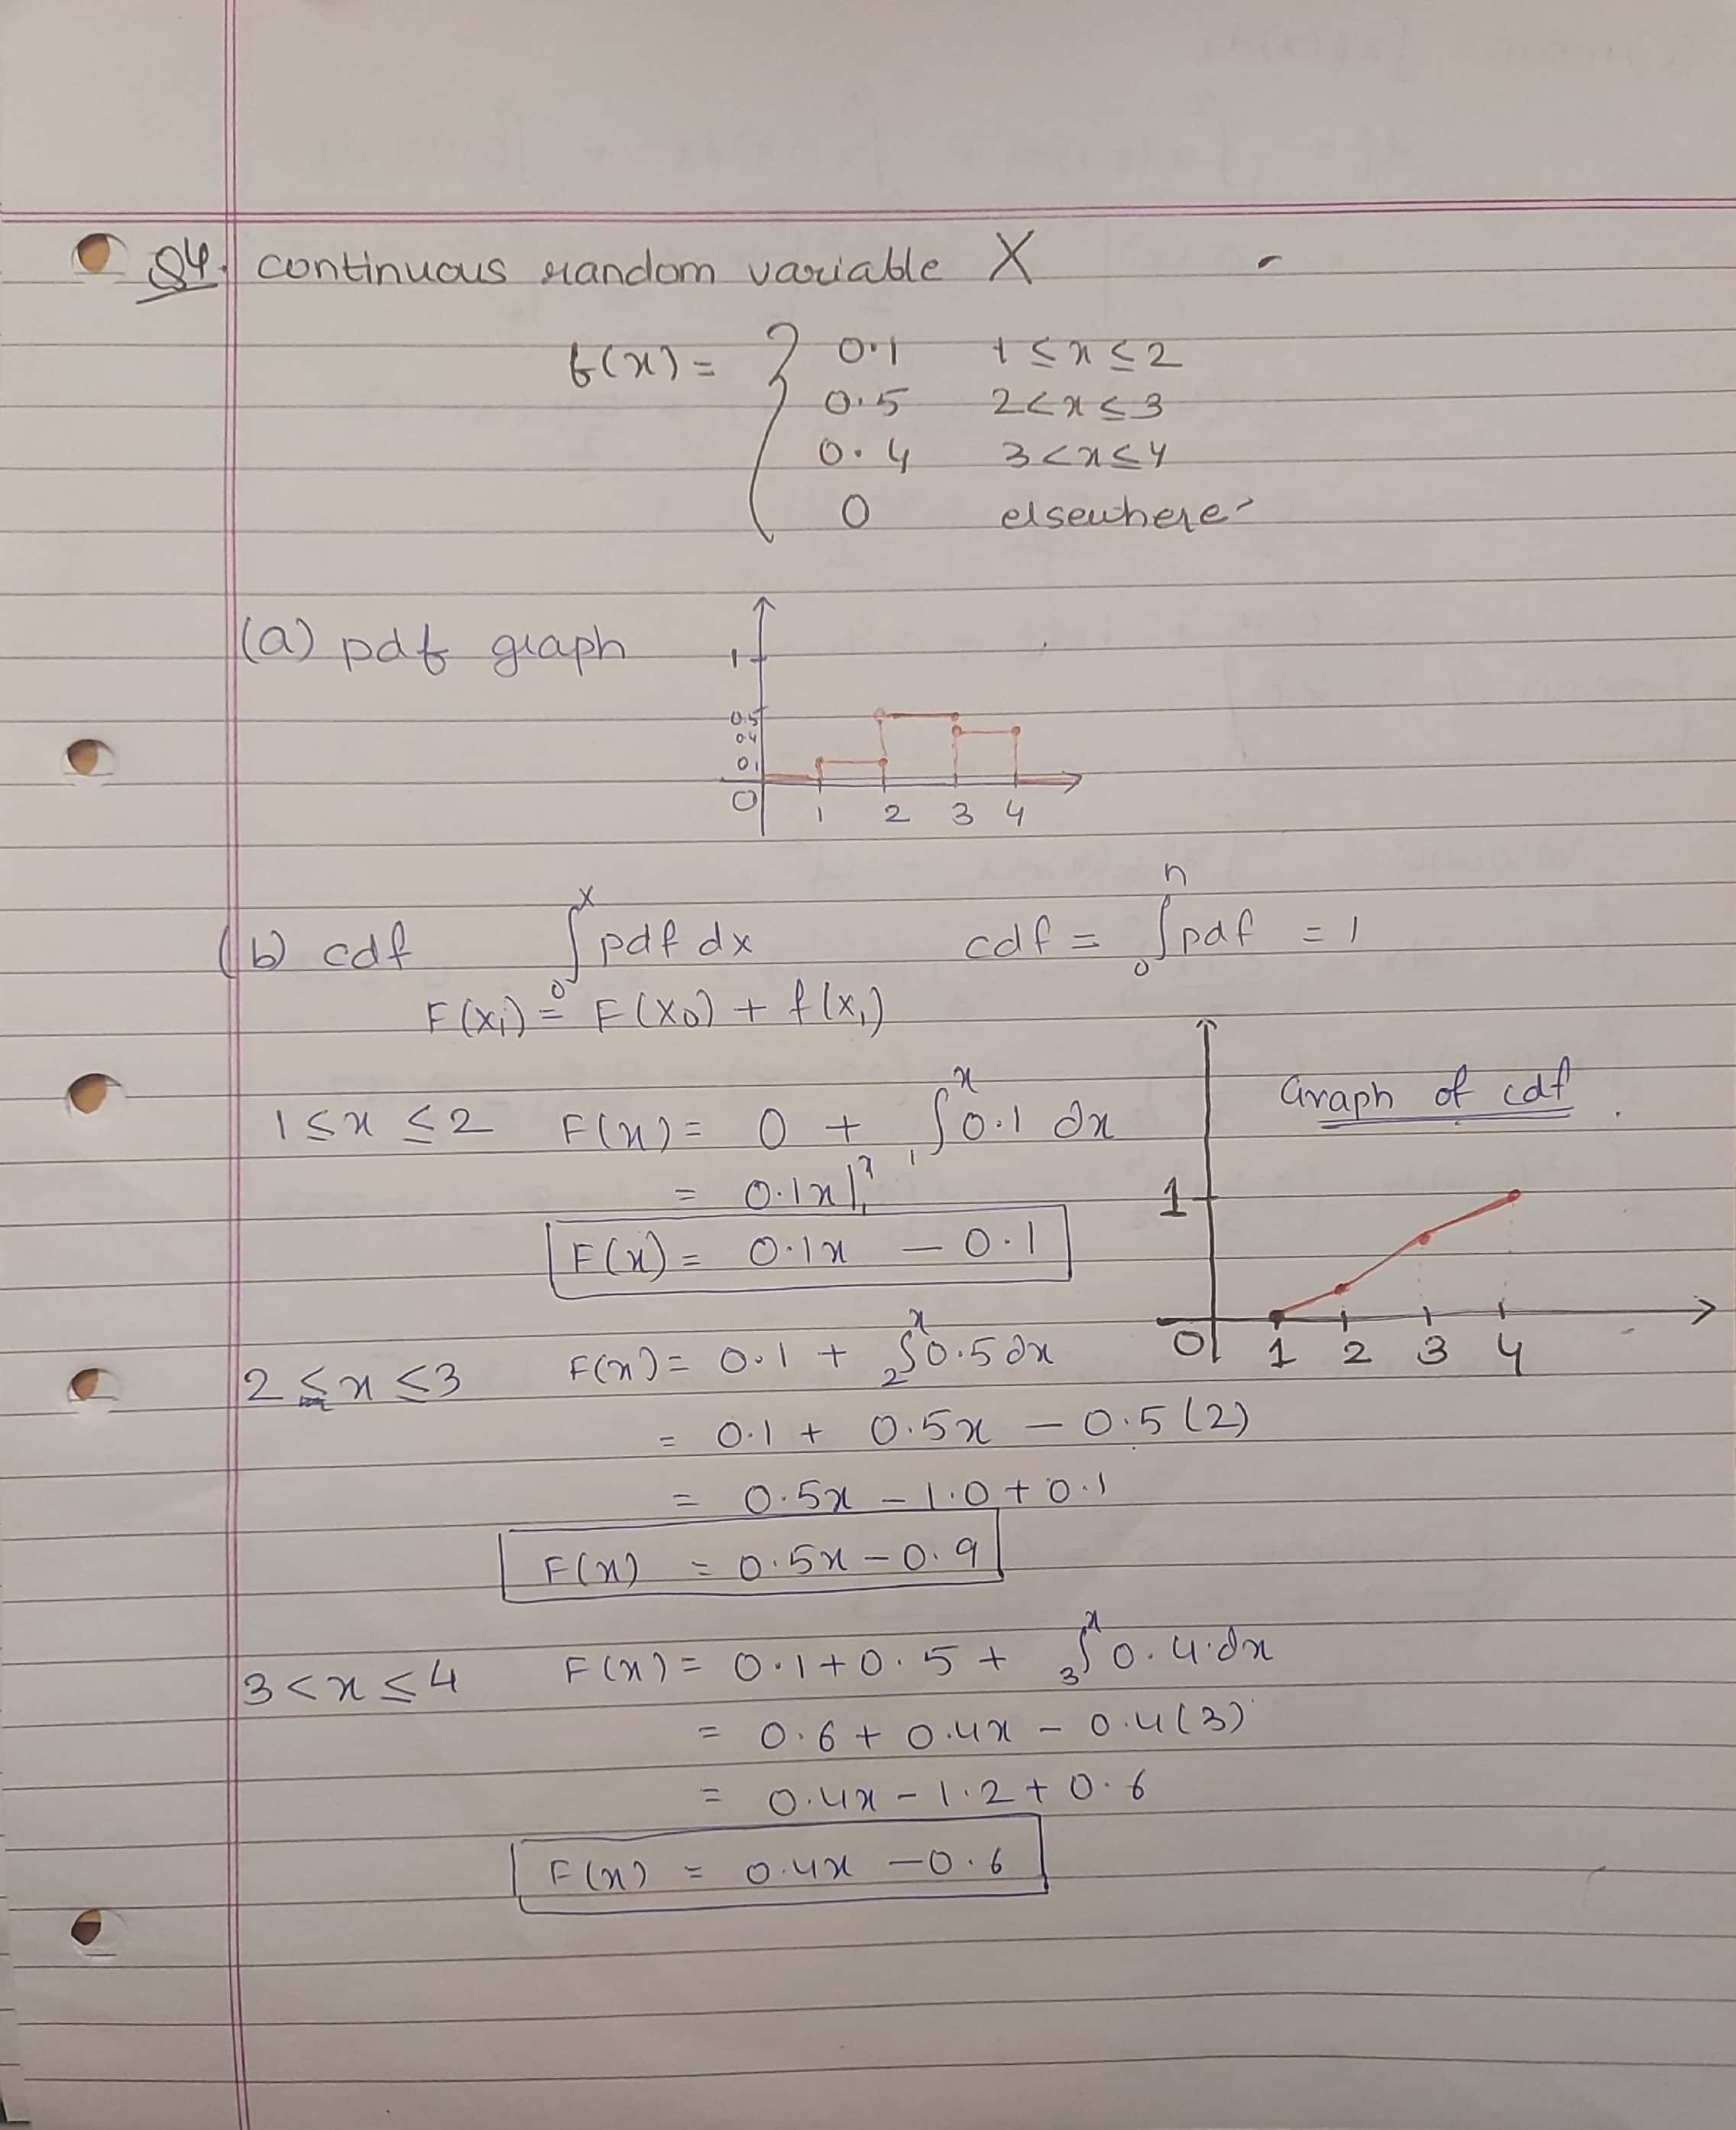 Q4. continuous random variable X
f(x) = { 0.1 1 ≤ x ≤ 2
0.5 2 < x ≤ 3
0.4 3 < x ≤ 4
0 elsewhere
(a) pdf graph
1
0.5
0.4
0.1
0 1 2 3 4
(b) cdf ∫₀ˣ pdf dx cdf = ∫₀ⁿ pdf = 1
F(x₁) = F(x₀) + f(x₁)
Graph of cdf
1
0 1 2 3 4
1 ≤ x ≤ 2 F(x) = 0 + ∫₁ˣ 0.1 dx
= 0.1x|₁ˣ
F(x) = 0.1x - 0.1
2 ≤ x ≤ 3 F(x) = 0.1 + ∫₂ˣ 0.5 dx
= 0.1 + 0.5x - 0.5(2)
= 0.5x - 1.0 + 0.1
F(x) = 0.5x - 0.9
3 < x ≤ 4 F(x) = 0.1 + 0.5 + ∫₃ˣ 0.4 dx
= 0.6 + 0.4x - 0.4(3)
= 0.4x - 1.2 + 0.6
F(x) = 0.4x - 0.6